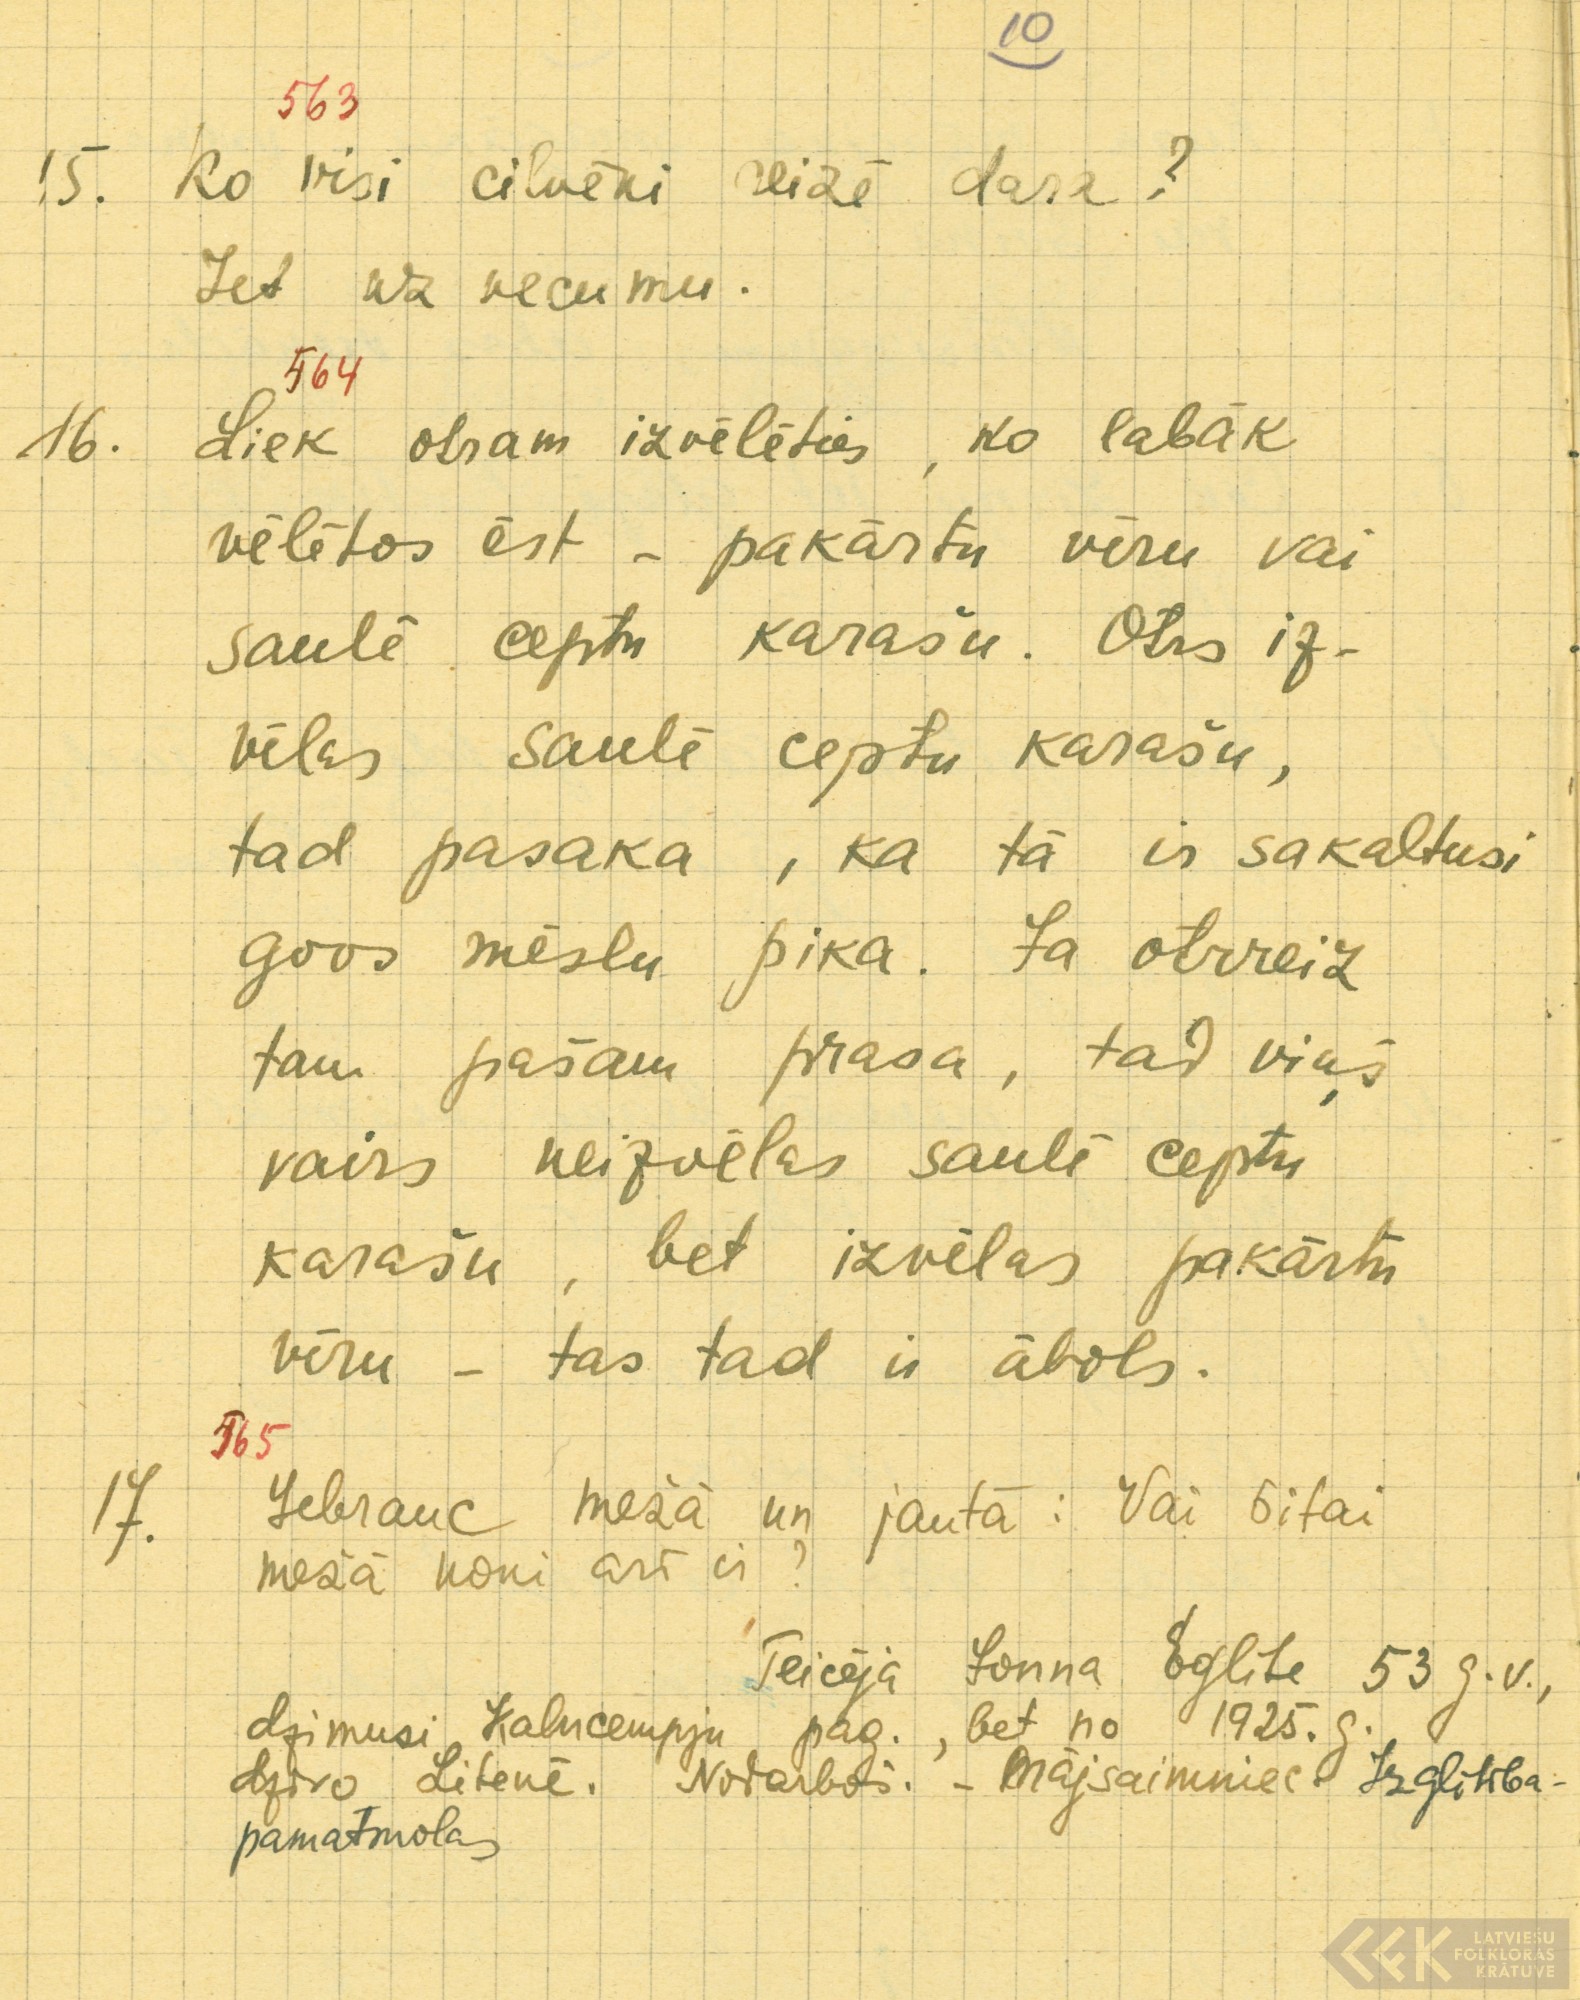 10
563
15. Ko visi cilvēki reizē dara?
Iet uz vecumu.
564
16. Liek otram izvēlēties, ko labāk
vēlētos ēst - pakārtu vīru vai
saulē ceptu karašu. Otrs iz-
vēlas saulē ceptu karašu,
tad pasaka, ka tā ir sakaltusi
govs mēslu pika. Ja otrreiz
tam pašam prasa, tad viņš
vairs neizvēlas saulē ceptu
karašu, bet izvēlas pakārtu
vīru - tas tad ir ābols.
565
17. Iebrauc mežā un jautā: Vai šitai
mežā koki arī ir?
Teicēja Eglīte 53 g.v.,
dzimusi Kalncempju pag., bet no 1925. g.
dzīvo Litenē. Nodarboš. - Mājsaimniec. Izglītība -
pamatskolas
LATVIEŠU
FOLKLORAS
KRĀTUVE